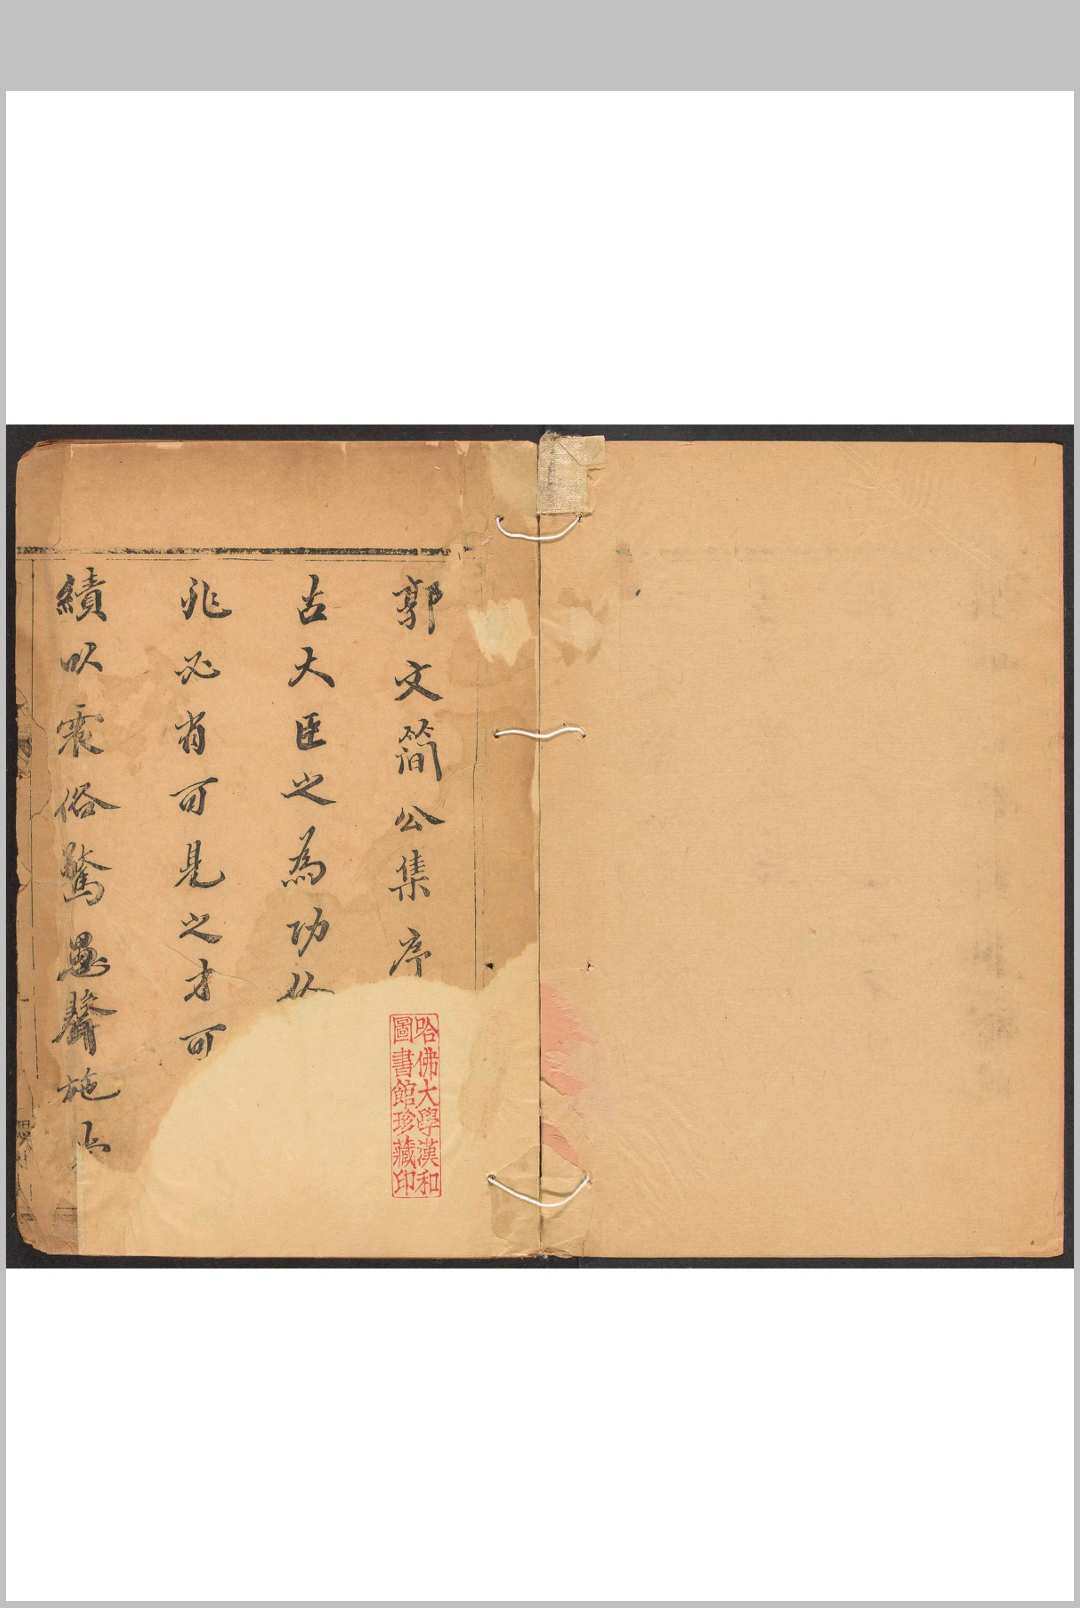 郭文簡公集序
古大臣之為功
非必有可見之才可
績以震俗驚愚聲施
哈佛大學漢和
圖書館珍藏印